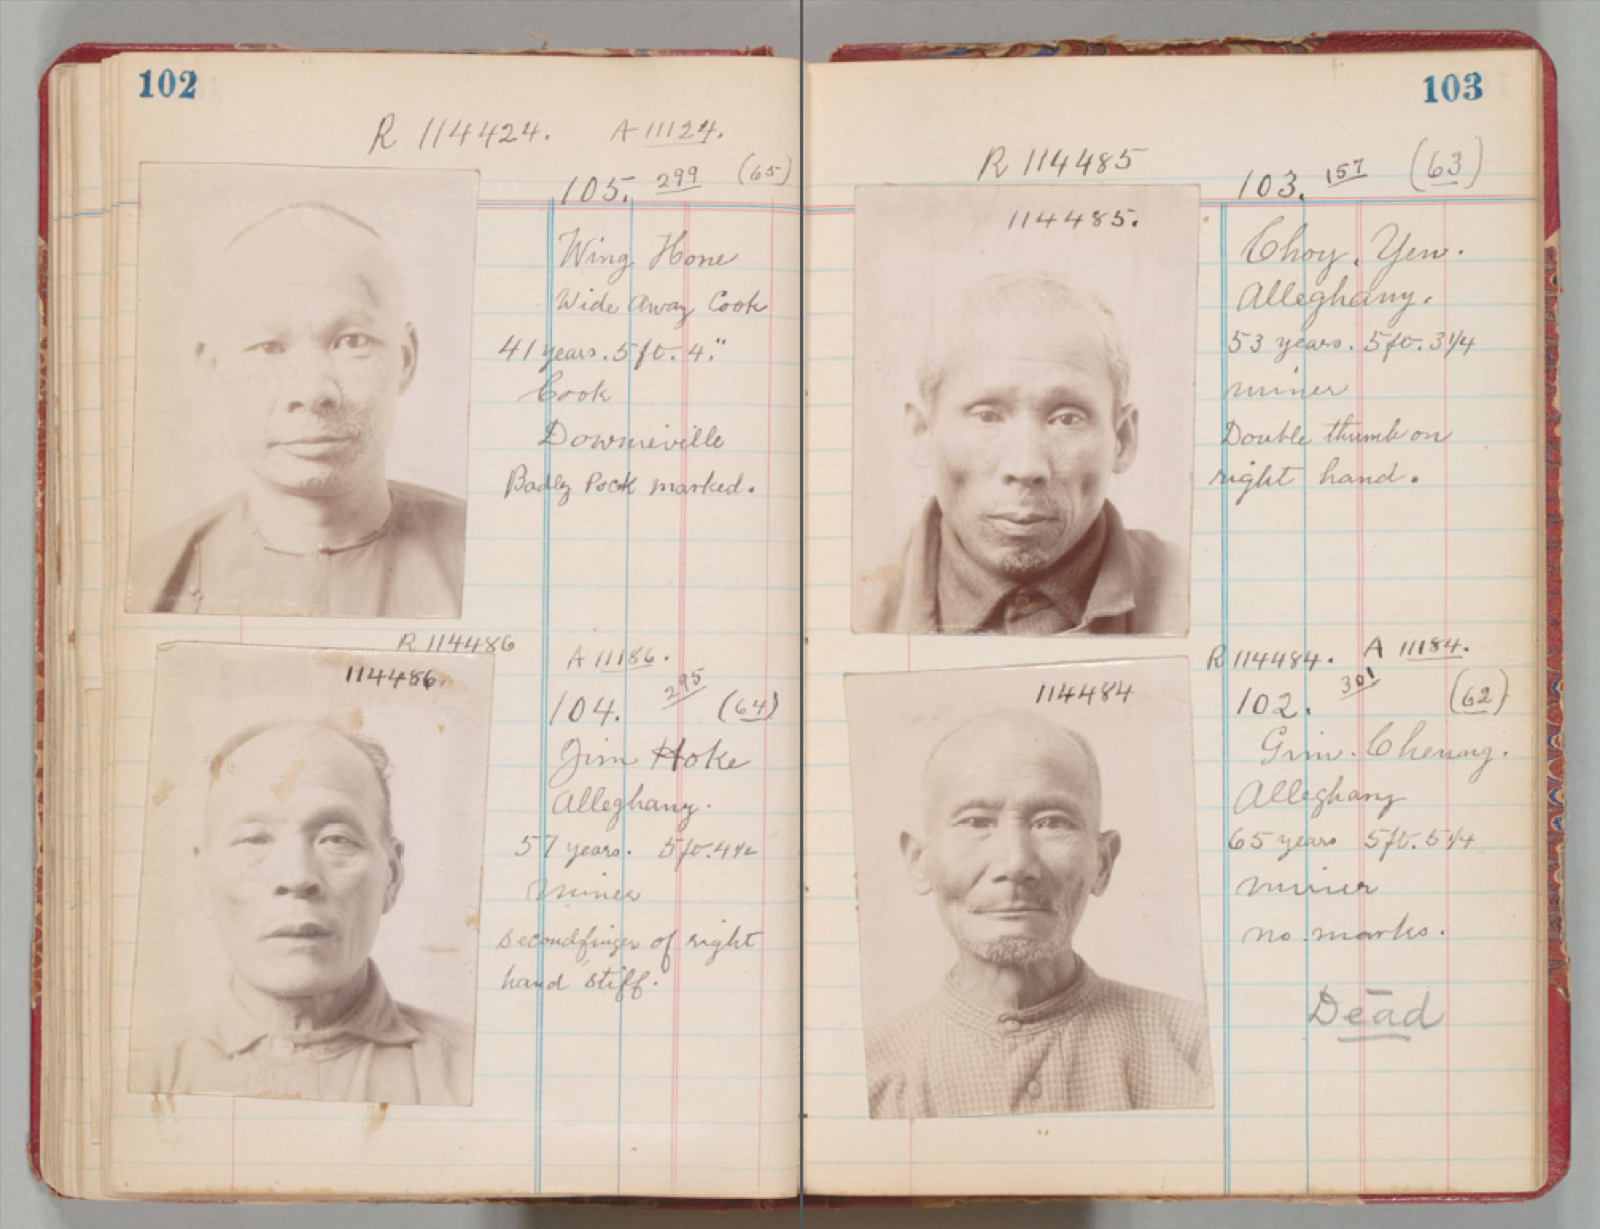 102
R 114424. A 11124.
105. 299 (65)
Wing Hone
Wide Away Cook
41 years. 5 ft. 4."
Cook
Downieville
Badly Pock marked.
R 114486
114486.
A 11186.
104. 295 (64)
Jim Hoke
Alleghany.
57 years. 5 ft. 4 1/2
Miner
Second finger of right
hand stiff.
103
R 114485
114485.
103. 157 (63)
Choy, Yew.
Alleghany.
53 years. 5 ft. 3 1/4
miner
Double thumb on
right hand.
R 114484. A 11184.
114484
102. 301 (62)
Grim. Cheung.
Alleghany
65 years 5 ft. 5 1/4
miner
no marks.
Dead